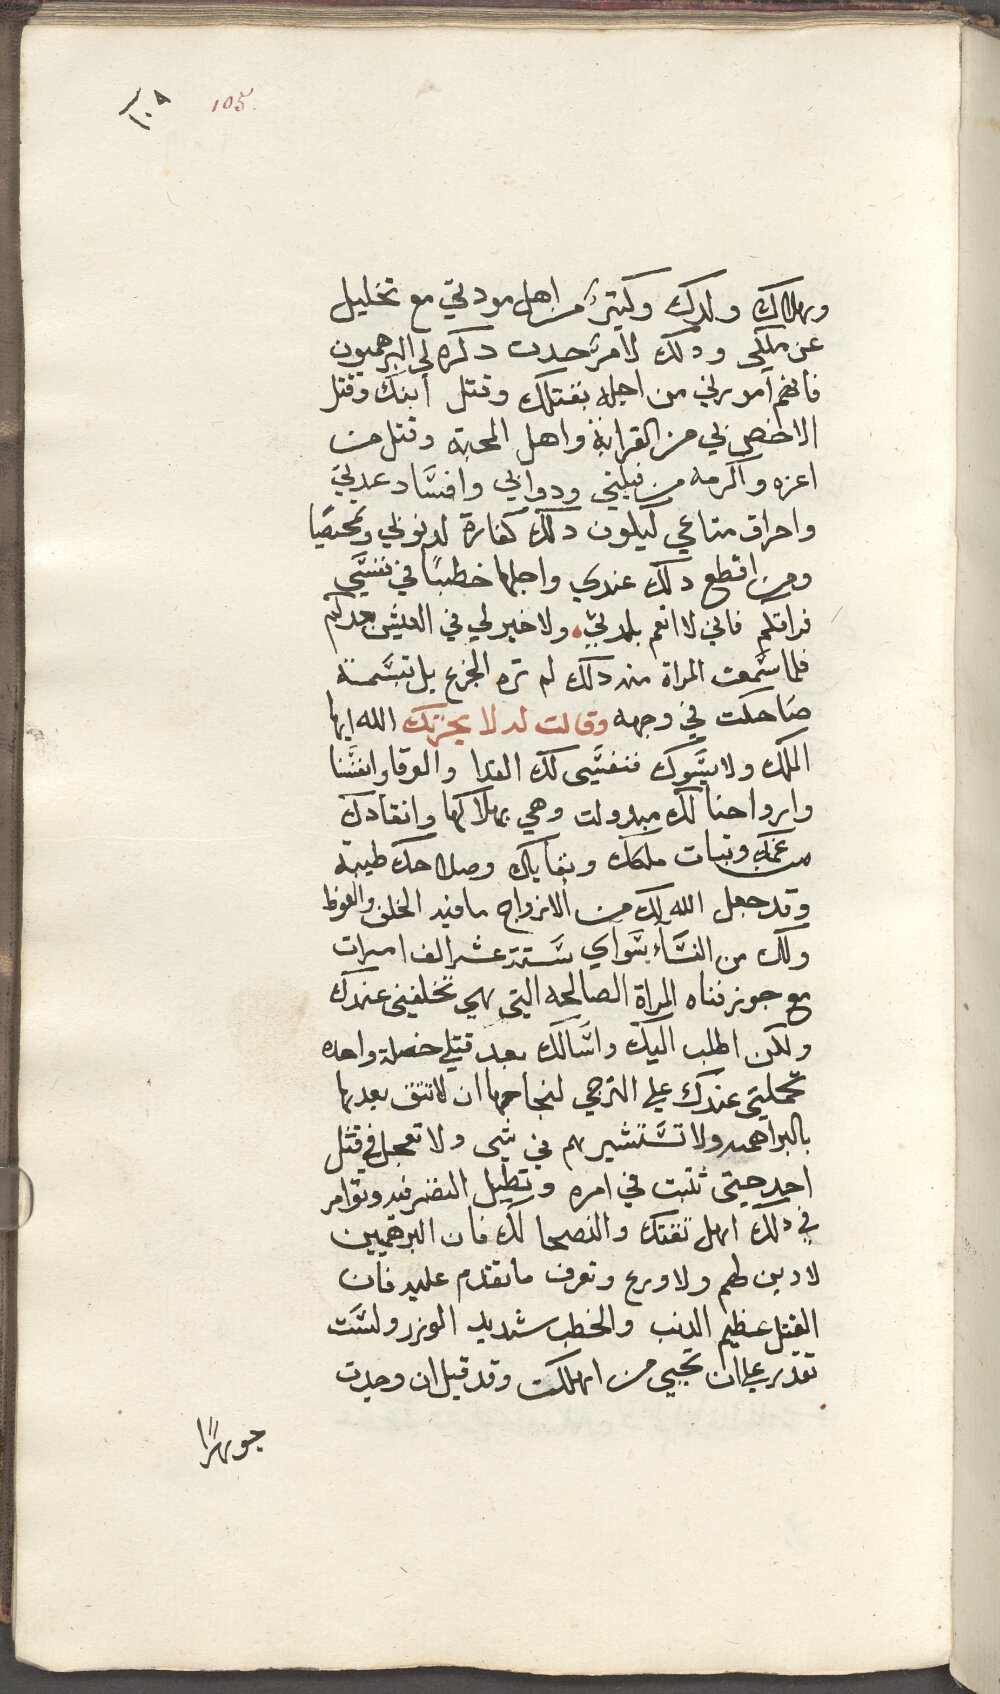 ١٠٨ 105
وبهلاك ولدك وكثير من اهل مودتي مع تخليل
عن ملكي وذلك لامر حدث ذكره لي البرهميون
فانهم امروني من اجله بقتلك وقتل ابنك وقتل
الاخص لي من القرابة واهل المحبة وقتل من
اعزه واكرمه من فيلتي ودوابي وافساد عدتي
واحراق متاعي ليكون ذلك كفارة لدنوبي وتمحيصا
ومن اقطع ذلك عندي واجلها خطبا في نفسي
فراقكم فاني لا انعم بلدتي ولا خير لي في العيش بعدكم
فلما سمعت المراة منه ذلك لم تره الجزع بل تبسمة
ضاحكت في وجهه وقالت له لا يحزنك الله ايها
الملك ولا يسوك فنفسي لك الفدا والوقا وانفسنا
وارواحنا لك مبدولت وهي بهلاكها وانقادك
من غمك وتبات ملكك وبقايك وصلاحك طيبة
وقد جعل الله لك من الازواج ما فيه الخلف والعوظ
ولك من النساء سواي ستة عشر الف امرات
مع جورفناه المراة الصالحه التي هي تخلفني عندك
ولكن اطلب اليك واسالك بعد قتلي خصلة واحده
تحملني عندك علي الترجي لنجاحها ان لا تثق بعدها
بالبراهمه ولا تستشيرهم في شي ولا تعجل في قتل
احد حتي تثبت في امره وتطيل النضر فيه وتوامر
في ذلك اهل تقتك والنصحا لك فان البرهميين
لا دين لهم ولا ورع وتعرف ما تقدم عليه فان
القتل عظيم الدنب والخطب شديد الوزر ولست
تقدر علي ان تحيي من اهلكت وقد قيل ان وجدت
جوهرا